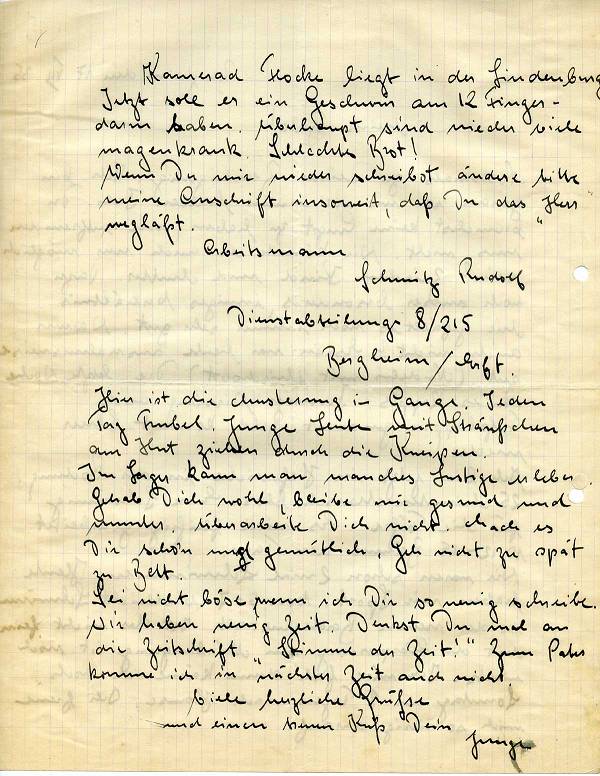 Kamerad Flocke liegt in der Lindenburg
Jetzt soll er ein Geschwür am 12 Finger-
darm haben. Überhaupt sind wieder viele
magenkrank. Schlechtes Brot!
Wenn Du mir wieder schreibst ändere bitte
meine Anschrift insoweit, daß Du das "Herr"
wegläßt.
Arbeitsmann
Schmitz Rudolf
Dienstabteilung 8/215
Bergheim/Erft.
Hier ist die Musterung in Gange. Jeden
Tag Trubel. Junge Leute mit Sträußchen
am Hut ziehen durch die Kneipen.
Im Lager kann man manches Lustige erleben.
Gehab Dich wohl, bleibe mir gesund und
munter. Überarbeite Dich nicht. Mach es
Dir schön und gemütlich, Geh nicht zu spät
zu Bett.
Sei nicht böse, wenn ich Dir so wenig schreibe.
Wir haben wenig Zeit. Denkst Du mal an
die Zeitschrift "Stimme der Zeit!" Zum Pater
komme ich in nächster Zeit auch nicht.
Viele herzliche Grüße
und einen Kuß Dein
Junge